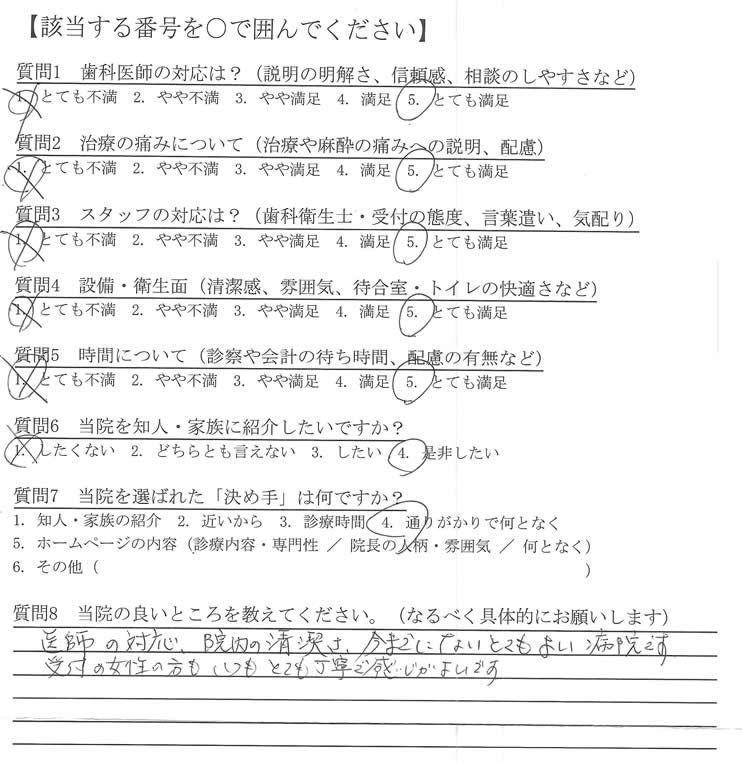 【該当する番号を〇で囲んでください】
質問1 歯科医師の対応は？（説明の明解さ、信頼感、相談のしやすさなど）
1. とても不満 2. やや不満 3. やや満足 4. 満足 5. とても満足
質問2 治療の痛みについて（治療や麻酔の痛みへの説明、配慮）
1. とても不満 2. やや不満 3. やや満足 4. 満足 5. とても満足
質問3 スタッフの対応は？（歯科衛生士・受付の態度、言葉遣い、気配り）
1. とても不満 2. やや不満 3. やや満足 4. 満足 5. とても満足
質問4 設備・衛生面（清潔感、雰囲気、待合室・トイレの快適さなど）
1. とても不満 2. やや不満 3. やや満足 4. 満足 5. とても満足
質問5 時間について（診察や会計の待ち時間、配慮の有無など）
1. とても不満 2. やや不満 3. やや満足 4. 満足 5. とても満足
質問6 当院を知人・家族に紹介したいですか？
1. したくない 2. どちらとも言えない 3. したい 4. 是非したい
質問7 当院を選ばれた「決め手」は何ですか？
1. 知人・家族の紹介 2. 近いから 3. 診療時間 4. 通りがかりで何となく
5. ホームページの内容（診療内容・専門性 ／ 院長の人柄・雰囲気 ／ 何となく）
6. その他（ ）
質問8 当院の良いところを教えてください。（なるべく具体的にお願いします）
医師の対応、院内の清潔さ、今までにないとてもよい病院です
受付の女性の方もいつもとても丁寧で感じがよいです